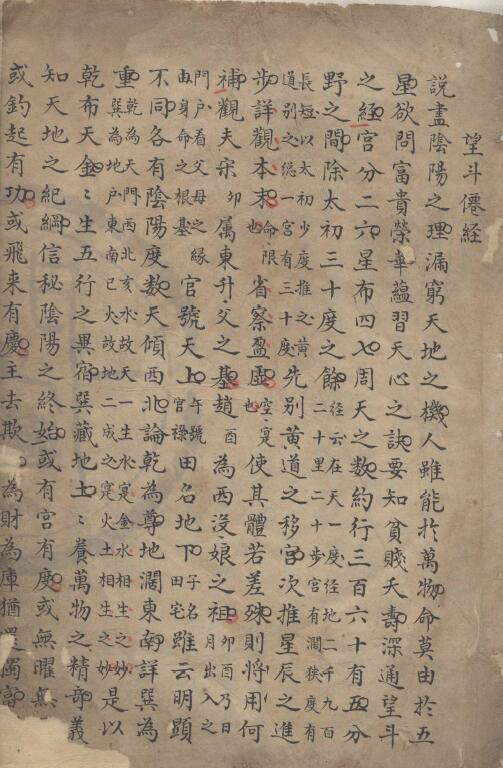 望斗僊經
說盡陰陽之理漏窮天地之機人雖能於萬物命莫由於五
星欲問富貴榮華蘊習天心之訣要知貧賤夭壽深通望斗
之經宮分二六星布四七周天之數約行三百六十有五分
野之間除太初三十度之餘經云在天一度徑地二千九百二十里二十步宮有濶狹度有
長短以太初少度推之黃道别之緫一宮有三十度先别黃道之移宮次推星辰之進
步詳觀本末命限也省察盈虛空㝠也使其體若差殊則將用何
補觀夫宋卯属東升父之基趙酉為西沒娘之祖卯酉乃日月出入之
門戶看父母之緣由身命之根基官號天上午號官祿田名地下子名田宅雖云明顯
不同各有陰陽度数天傾西北論乾為尊地濶東南詳巽為
重乾為天門西北亥水故天一生水㝠金水相生之妙巽為地戶東南巳火故地二成之㝠火土相生之妙是以
乾布天金〻生五行之異宿巽藏地土〻養萬物之精奇義
知天地之紀綱信秘陰陽之終始或有宮有度或無曜無
或釣起有功或飛来有慶主去欺 為財為庫猶是